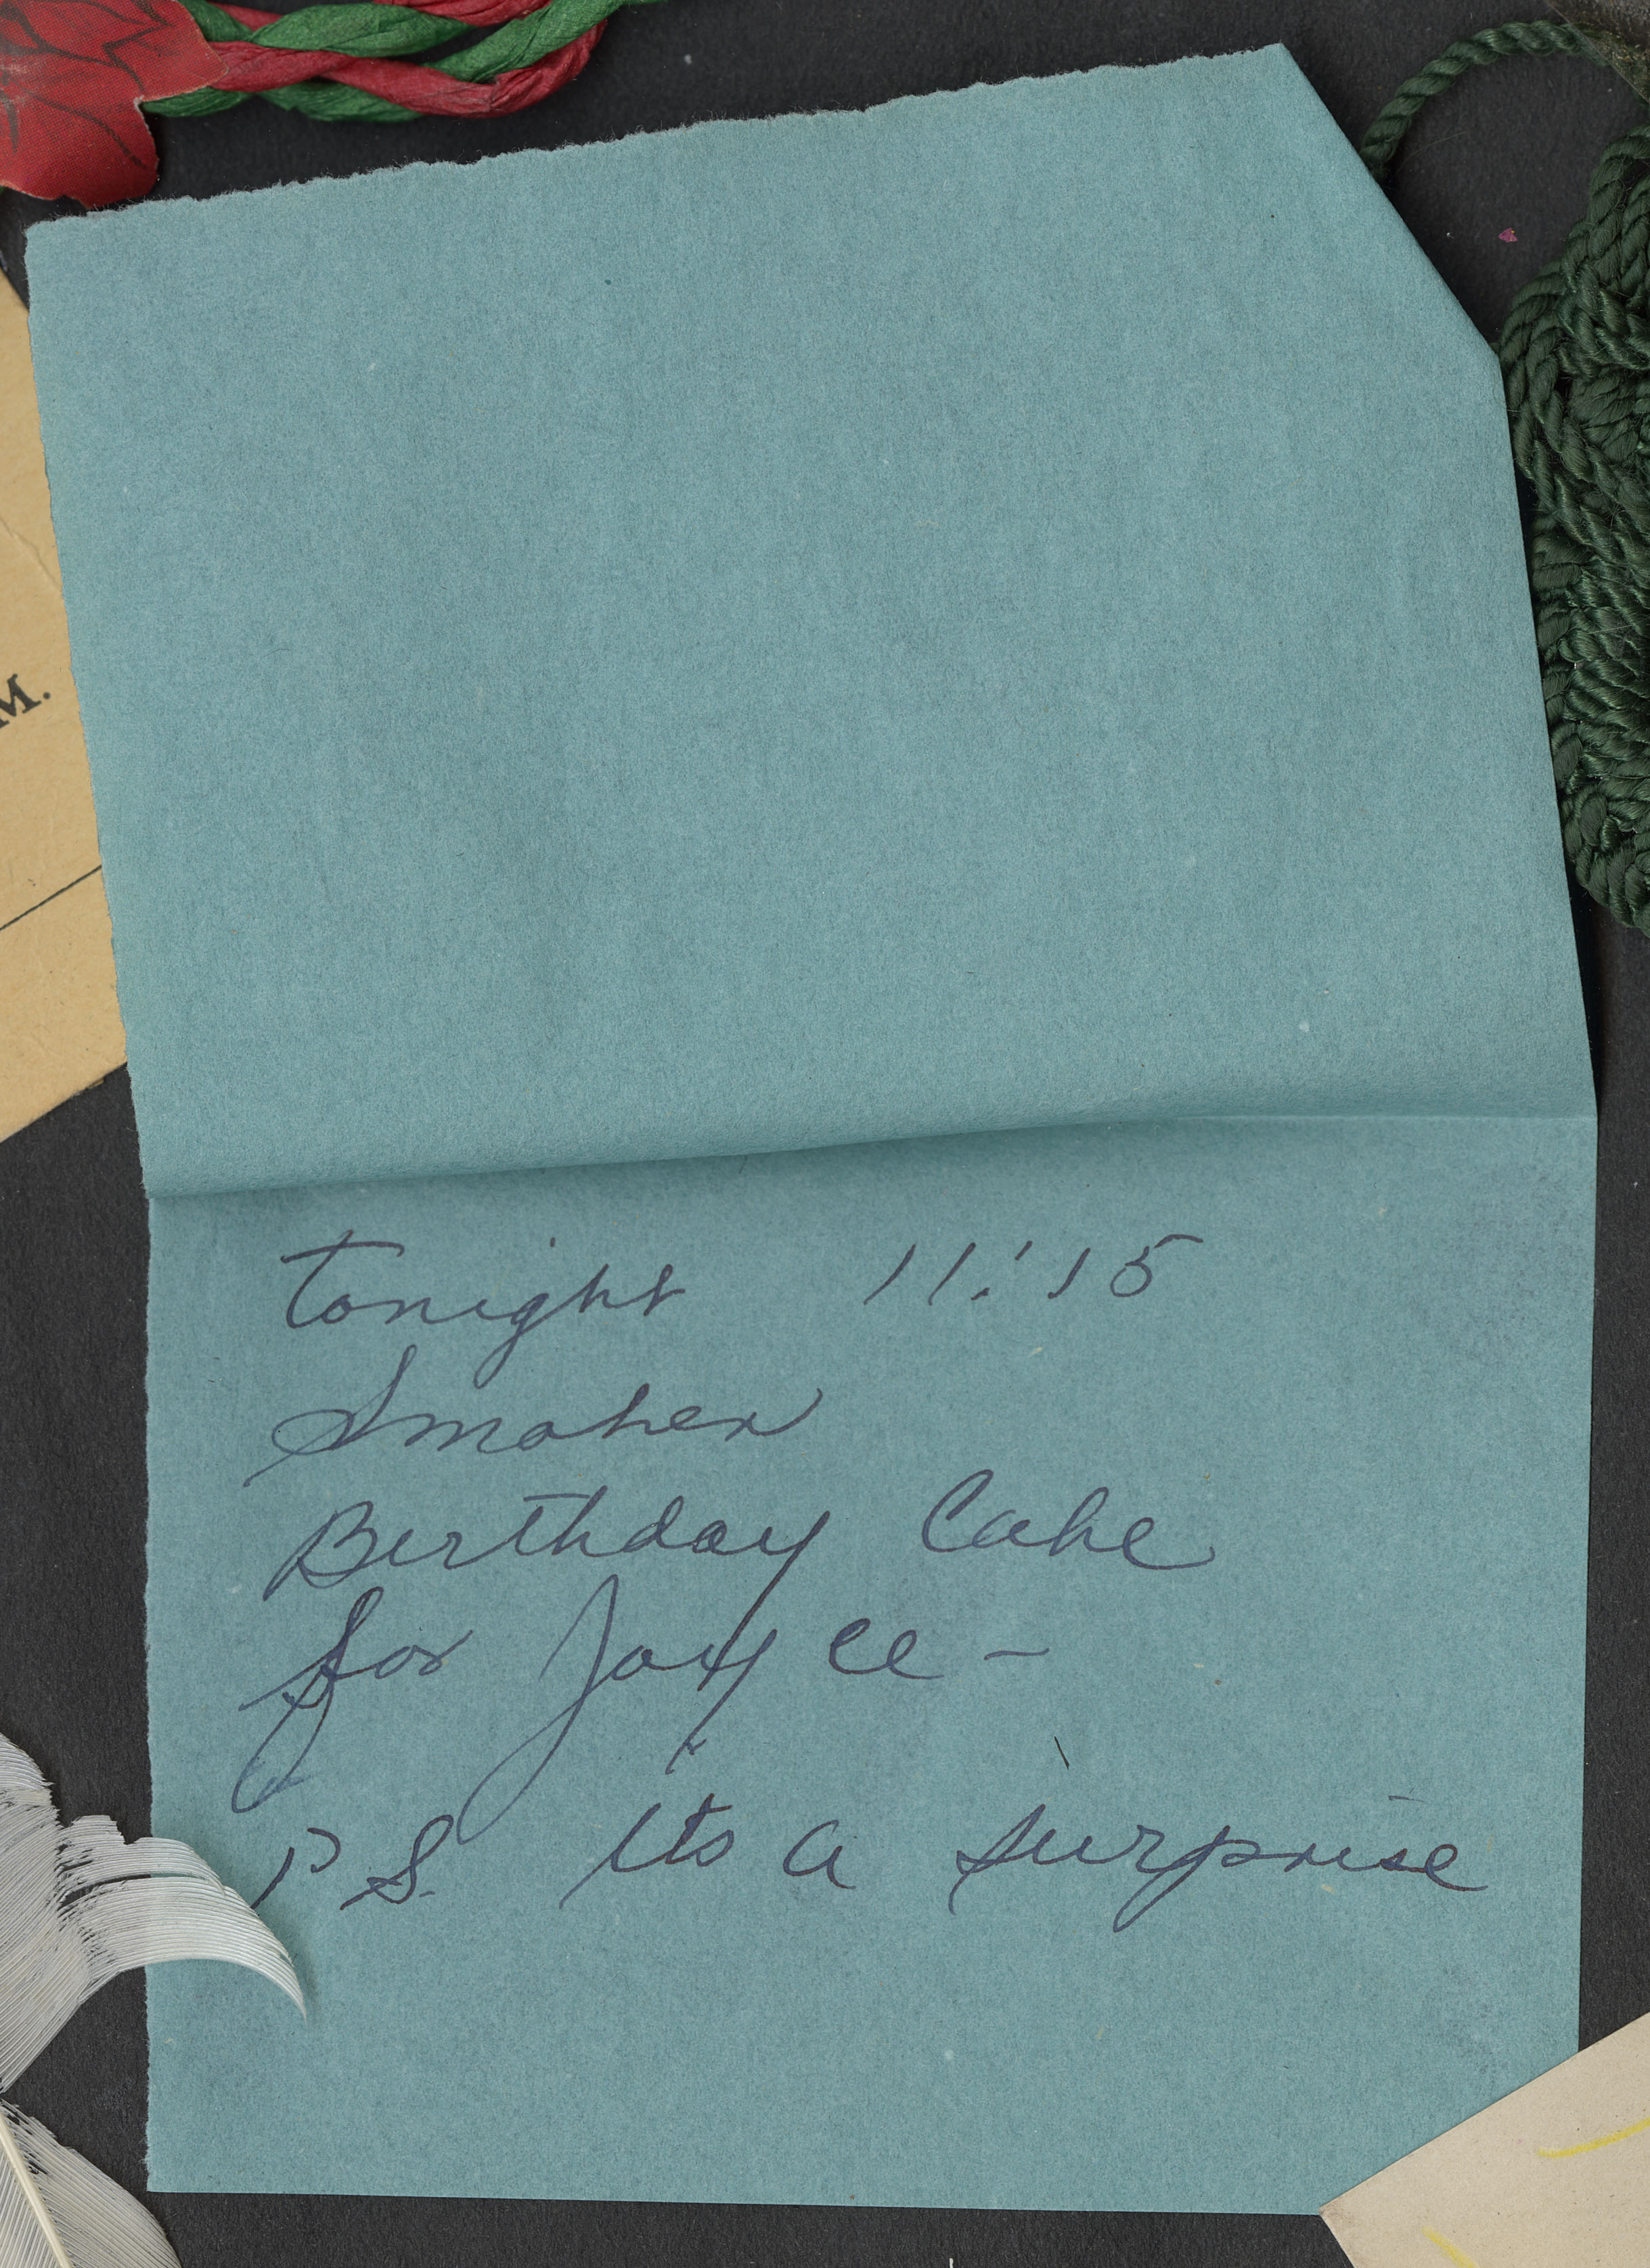 M.
tonight 11:15
Smoker
Birthday Cake
for Joyce -
P.S. Its a surprise